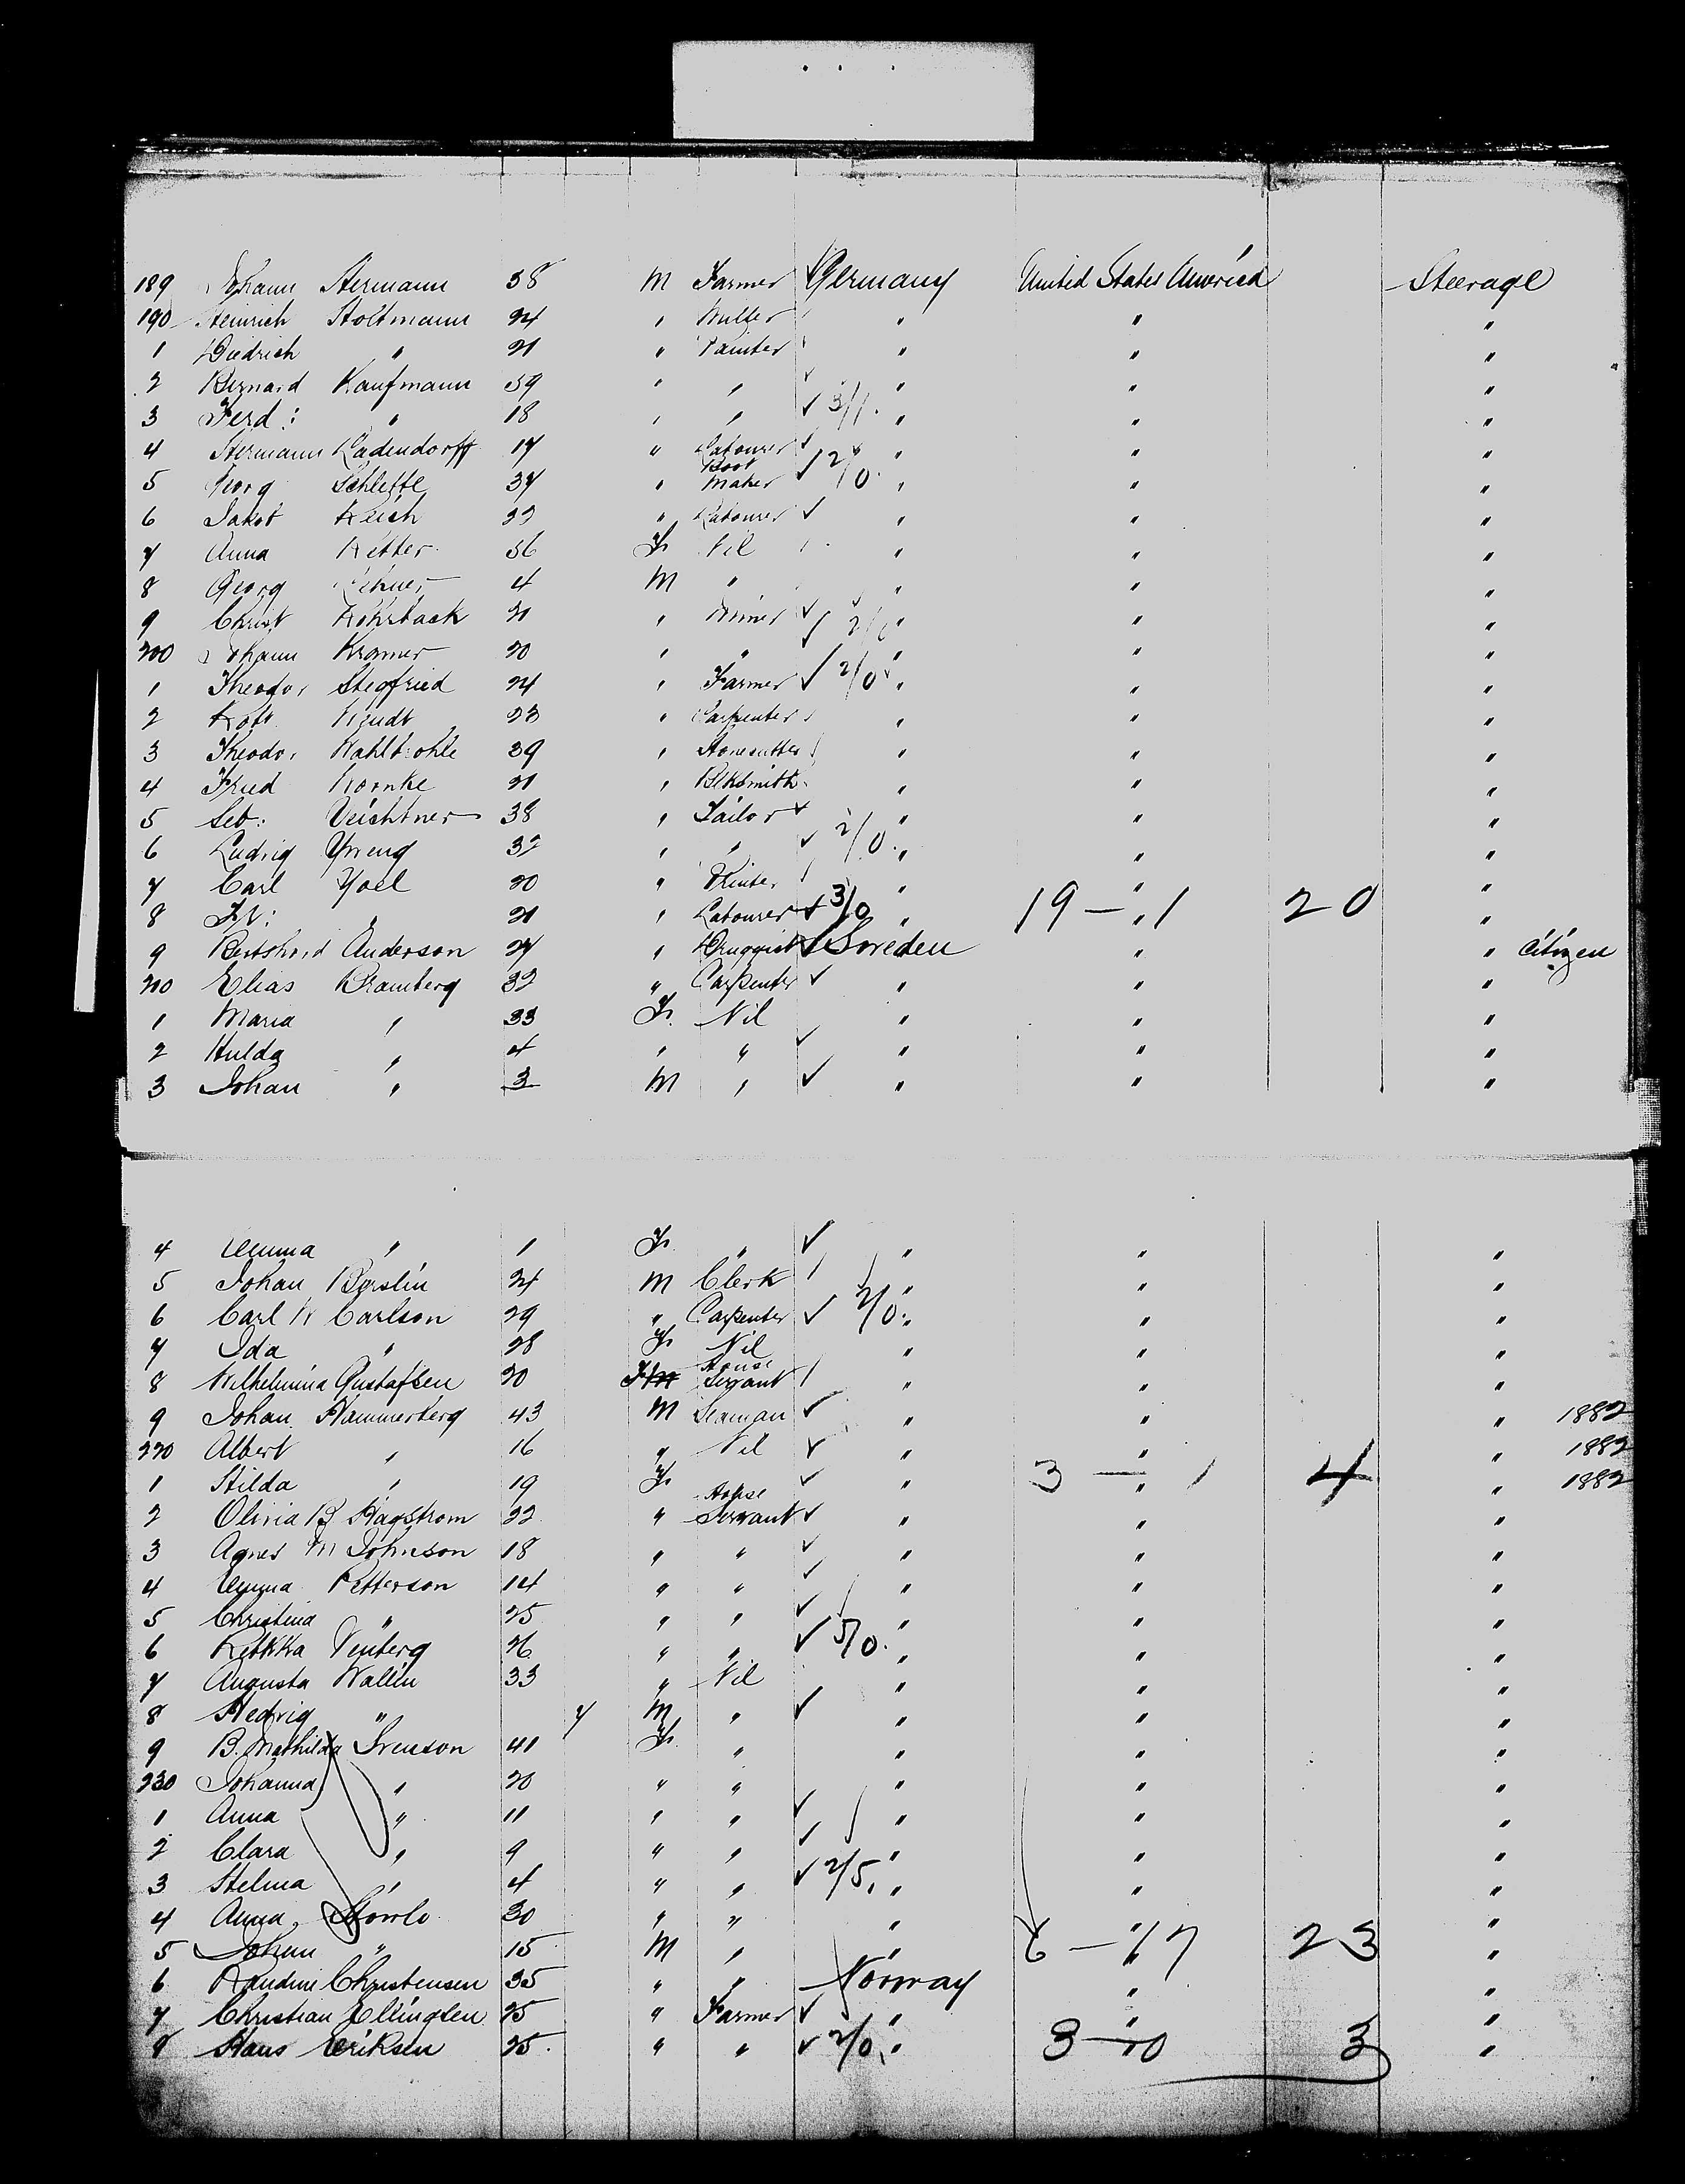 189 Johann Hermann 38 M Farmer ✓ Germany United States America Steerage
190 Heinrich Holtmann 24 " Miller " " "
1 Diedrich " 21 " Painter " " "
2 Bernard Kaufmann 39 " " ✓ " " "
3 Ferd: " 18 " " ✓ 3/1. " " "
4 Hermann Ladendorff 17 " Labourer ✓ " " "
5 Georg 37 " Boot Maker ✓ 2/0. " " "
6 Jakob Reich 22 " Labourer ✓ " " "
7 Anna Retter 56 F. Nil " " "
8 Georg 4 M " " " "
9 Christ Rohrback 21 " ✓ 2/0 " " "
200 Johann Kramer 20 " " " " "
1 Theodor Siegfried 24 " Farmer ✓ 2/0 " " "
2 Robt. 23 " Carpenter " " "
3 Theodor 39 " Stonecutter " " "
4 Fried 21 " Blksmith " " "
5 Seb: Veichtner 38 " Tailor ✓ " " "
6 Ludvig 32 " " ✓ 2/0. " " "
7 Carl Yoel 20 " " " "
8 " 21 " Labourer ✓ 3/0 " 19 — " 1 20 "
9 Anderson 27 " Druggist ✓ Sweden " " Citizen
210 Elias Bramberg 32 " Carpenter ✓ " " "
1 Maria " 33 F. Nil " " "
2 Hulda " 4 " " ✓ " " "
3 Johan " 3 M " ✓ " " "
4 Emma " 1 F. " ✓ " " "
5 Johan 24 M Clerk " " "
6 Carl Carlson 29 " Carpenter ✓ 2/0. " " "
7 Ida " 28 F. Nil " " "
8 Wilhelmina Gustafsen 20 F House Servant " " "
9 Johan Hammerberg 43 M Seaman ✓ " " " 1882
220 Albert " 16 " Nil ✓ " " " 1882
1 Hilda " 19 F. ✓ " 3 — " 1 4 " 1882
2 Olivia B Hagstrom 22 " House Servant ✓ " " "
3 Agnes M Johnson 18 " " ✓ " " "
4 Emma Petterson 14 " " ✓ " " "
5 Christina " 25 " " ✓ " " "
6 26 " " ✓ 5/0. " " "
7 Augusta Wallin 33 " Nil " " "
8 Hedvig " 7 M " ✓ " " "
9 B. Mathilda Svenson 41 F. " " " "
230 Johanna " 20 " " " " "
1 Anna " 11 " " ✓ " " "
2 Clara " 9 " " ✓ " " "
3 Helma " 4 " " ✓ 2/5. " " "
4 Anna 30 " " " " "
5 Johan " 15 M " " 6 — " 17 23 "
6 Christensen 35 " " Norway " "
7 Christian Ellingsen 25 " Farmer ✓ " " "
8 Hans Eriksen 25 " " ✓ 2/0. " 3 — " 0 3 "